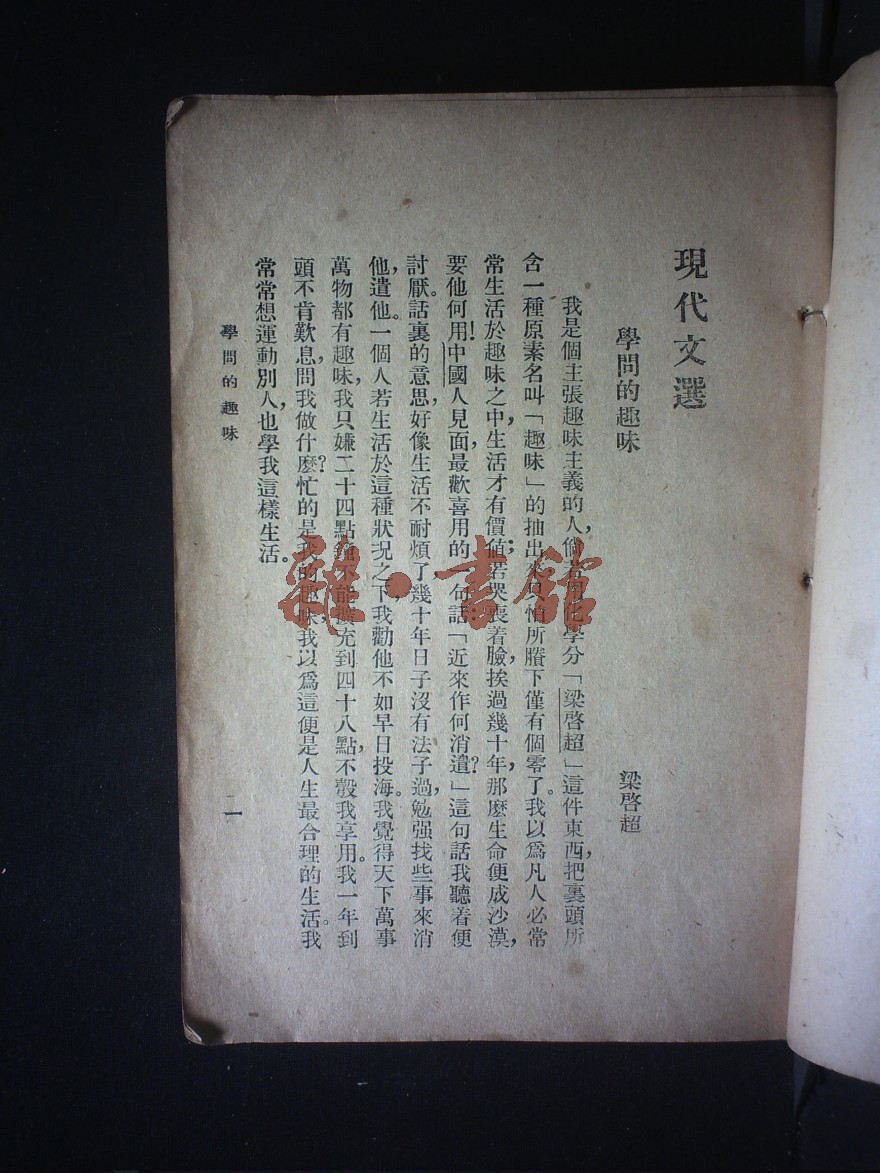 現代文選
學問的趣味
梁啓超
我是個主張趣味主義的人,倘若用化學分「梁啓超」這件東西,把裏頭所
含一種原素名叫「趣味」的抽出來,只怕所賸下僅有個零了。我以爲凡人必常
常生活於趣味之中,生活才有價値;若哭喪着臉,挨過幾十年,那麽生命便成沙漠,
要他何用!中國人見面,最歡喜用的一句話:「近來作何消遣?」這句話我聽着便
討厭。話裏的意思,好像生活不耐煩了,幾十年日子沒有法子過,勉强找些事來消
他,遣他。一個人若生活於這種狀况之下,我勸他不如早日投海。我覺得天下萬事
萬物都有趣味,我只嫌二十四點鐘不能擴充到四十八點,不彀我享用。我一年到
頭不肯歎息,問我做什麽忙?忙的是我的趣味,我以爲這便是人生最合理的生活。我
常常想運動別人,也學我這樣生活。
學問的趣味
一
雜·書館